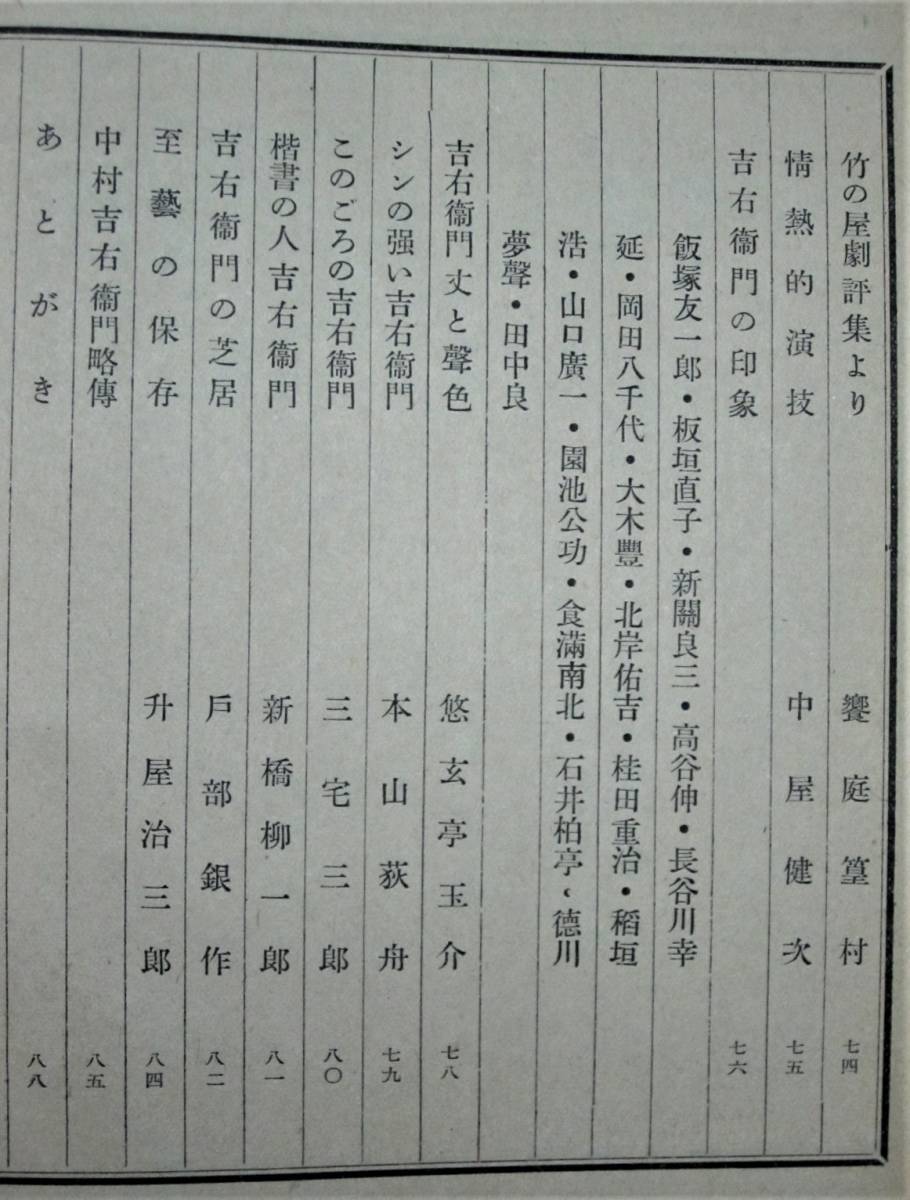 竹の屋劇評集より 饗庭篁村 七四
情熱的演技 中屋健次 七五
吉右衞門の印象 七六
飯塚友一郎・板垣直子・新關良三・高谷伸・長谷川幸
延・岡田八千代・大木豐・北岸佑吉・桂田重治・稻垣
浩・山口廣一・園池公功・食滿南北・石井柏亭・德川
夢聲・田中良
吉右衞門丈と聲色 悠玄亭玉介 七八
シンの强い吉右衞門 本山荻舟 七九
このごろの吉右衞門 三宅三郎 八〇
楷書の人吉右衞門 新橋柳一郎 八一
吉右衞門の芝居 戶部銀作 八二
至藝の保存 升屋治三郎 八四
中村吉右衞門略傳 八五
あとがき 八八